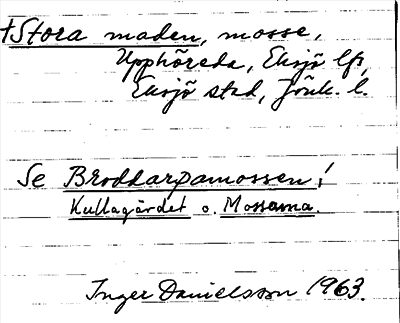 †Stora maden, mosse,
Upphöreda, Eksjö lfs,
Eksjö stad, Jönk. l.
Se Broddarpamossen!
Kullagärdet o. Mossarna.
Inger Danielsson 1963.